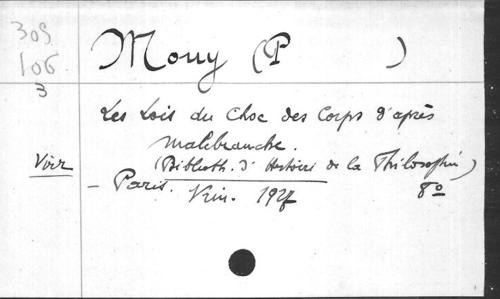 305
106
3
Mouy (P )
Les Lois du Choc des Corps d'après
Malebranche.
Voir
(Biblioth. d'Histoire de la Philosophie)
– Paris. Vrin. 1927 8º